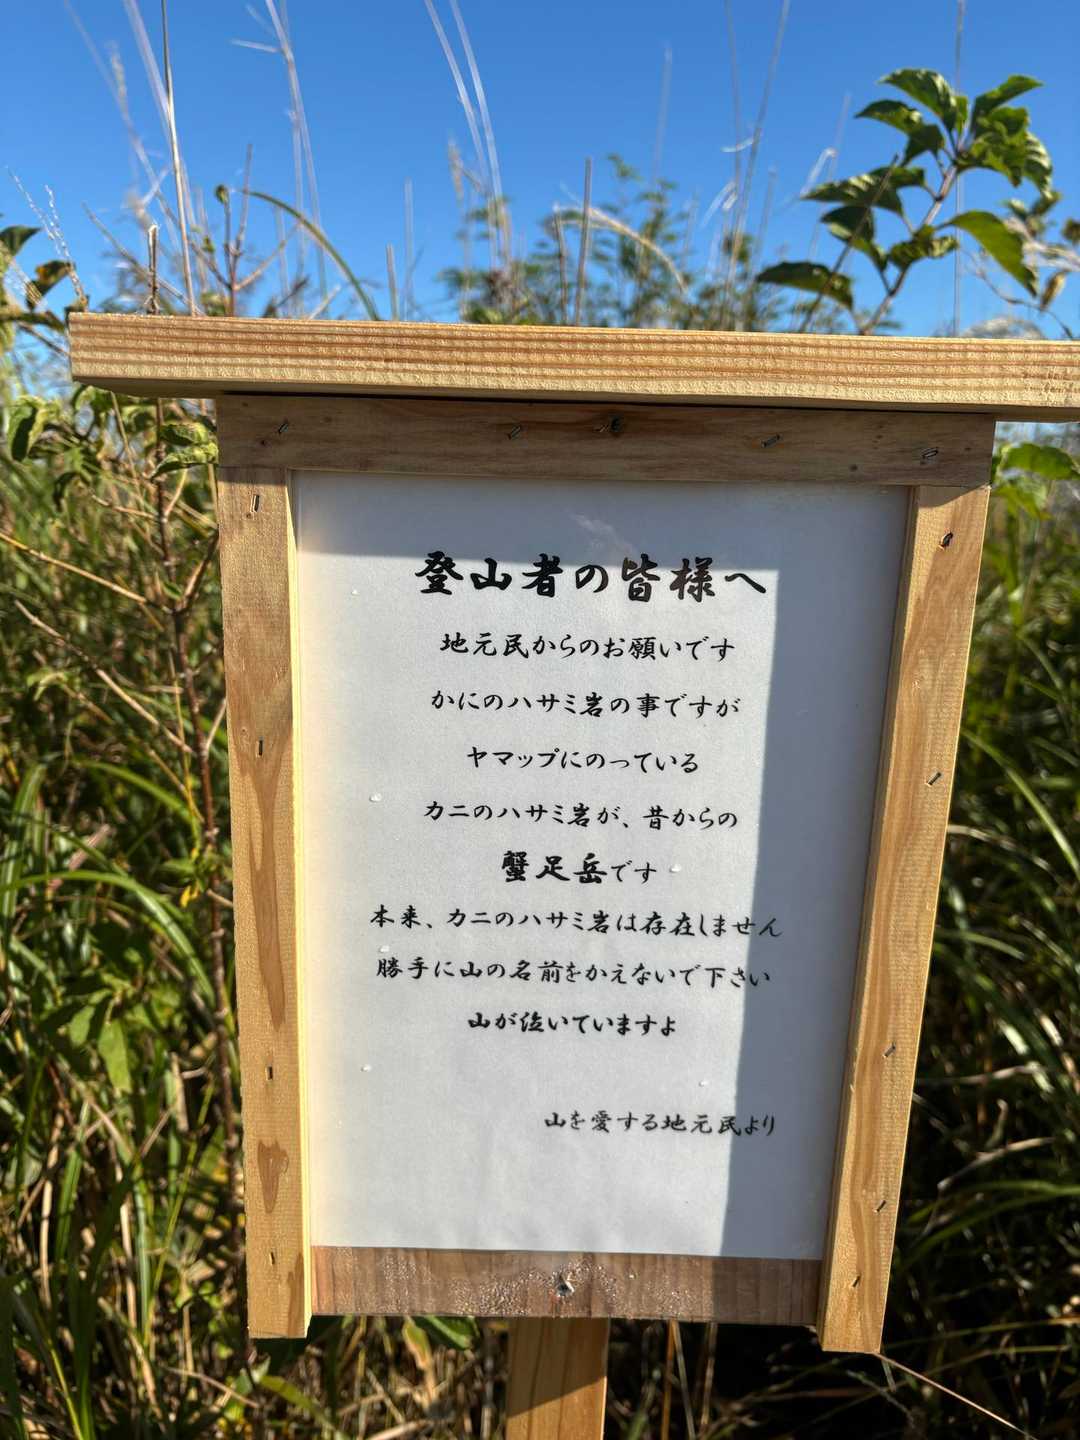 登山者の皆様へ
地元民からのお願いです
かにのハサミ岩の事ですが
ヤマップにのっている
カニのハサミ岩が、昔からの
蟹足岳です
本来、カニのハサミ岩は存在しません
勝手に山の名前をかえないで下さい
山が泣いていますよ
山を愛する地元民より